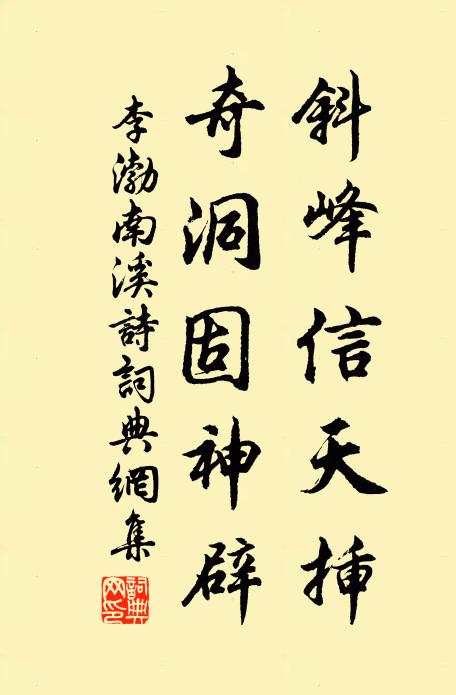 斜峰信天揷
奇洞固神辟
李渤南溪詩詞典網集
詞典網印